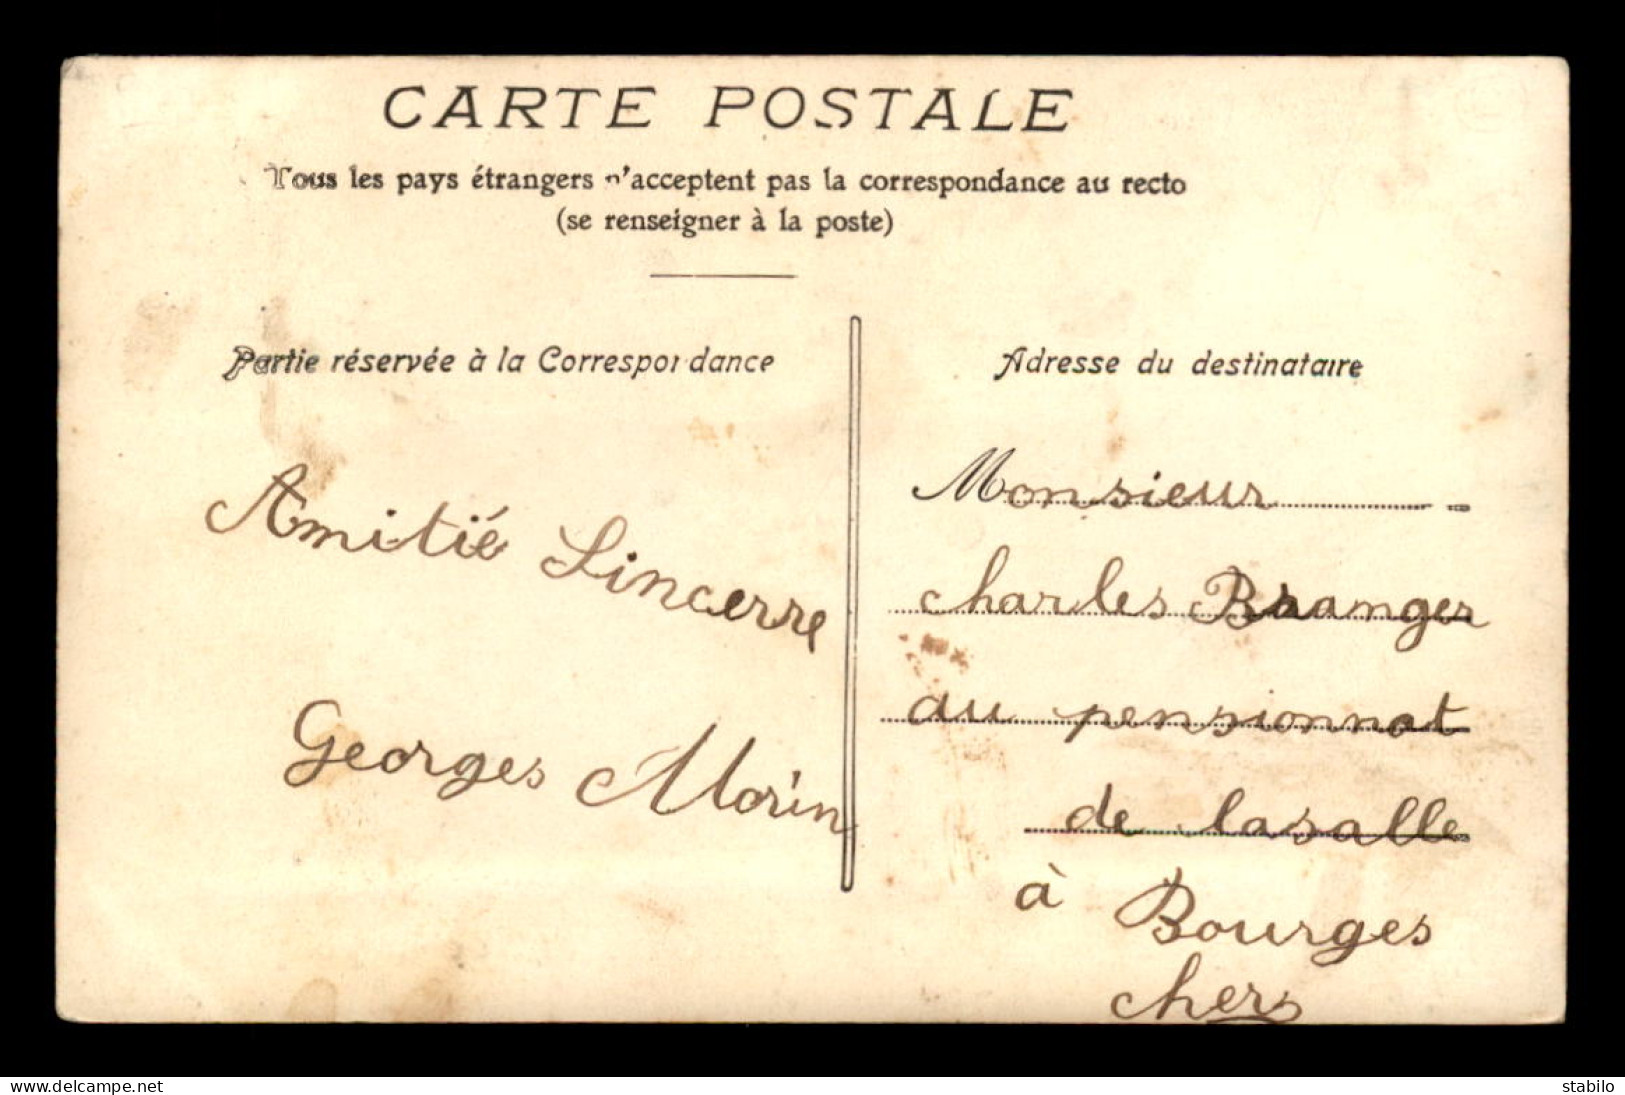 CARTE POSTALE
Tous les pays étrangers n'acceptent pas la correspondance au recto
(se renseigner à la poste)
Partie réservée à la Correspondance
Adresse du destinataire
Amitié Sincerre
Georges Morin
Monsieur
charles Branger
au pensionnat
de lasalle
à Bourges
chers
www.delcampe.net
stabilo